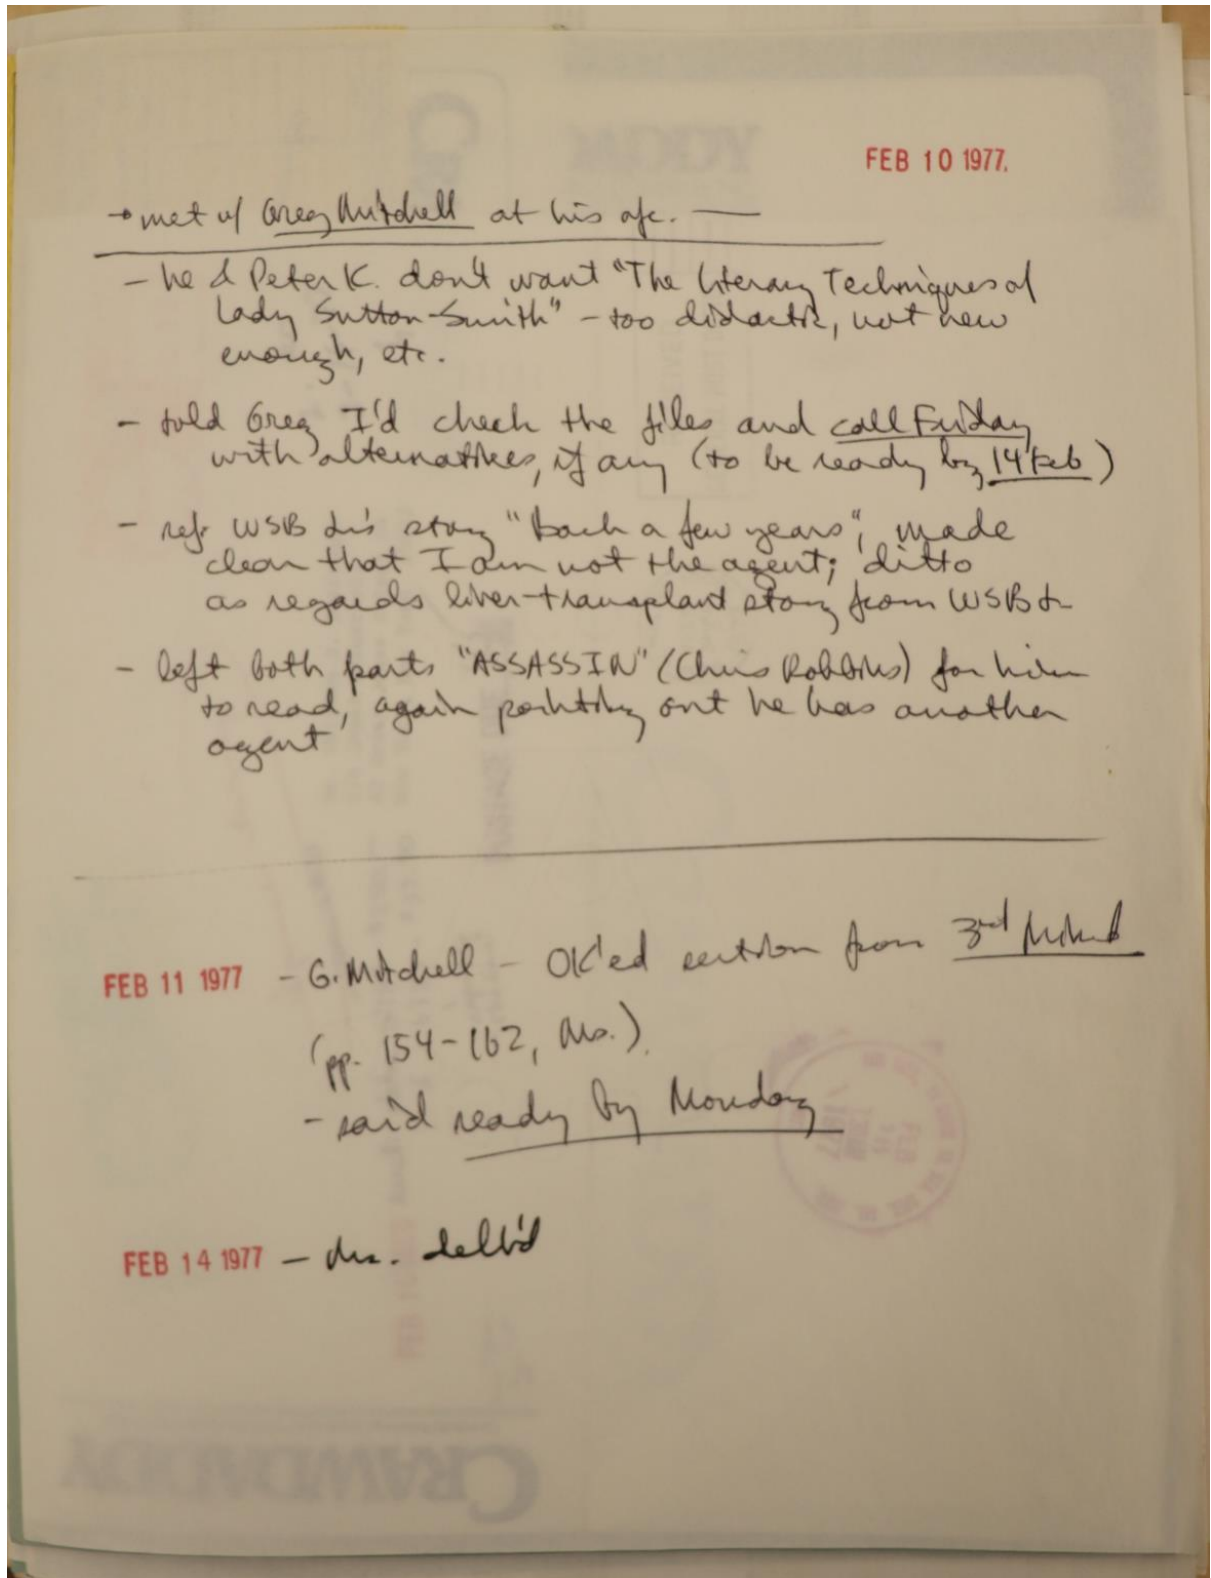 FEB 10 1977.
→ met w/ Greg Mitchell at his ofc. —
- he & Peter K. don't want "The Literary Techniques of
Lady Sutton-Smith" - too didactic, not new
enough, etc.
- told Greg I'd check the files and call Friday
with alternatives, if any (to be ready by 14 Feb)
- ref. WSB Jr's story "Back a few years", made
clear that I am not the agent; ditto
as regards liver-transplant story from WSB Jr
- left both parts "ASSASSIN" (Chris Robbins) for him
to read, again pointing out he has another
agent
FEB 11 1977 - G. Mitchell - OK'ed section from 3rd Mind
(pp. 154-162, Ms.).
- said ready by Monday
FEB 14 1977 - Ms. deliv'd
CRAWDADDY